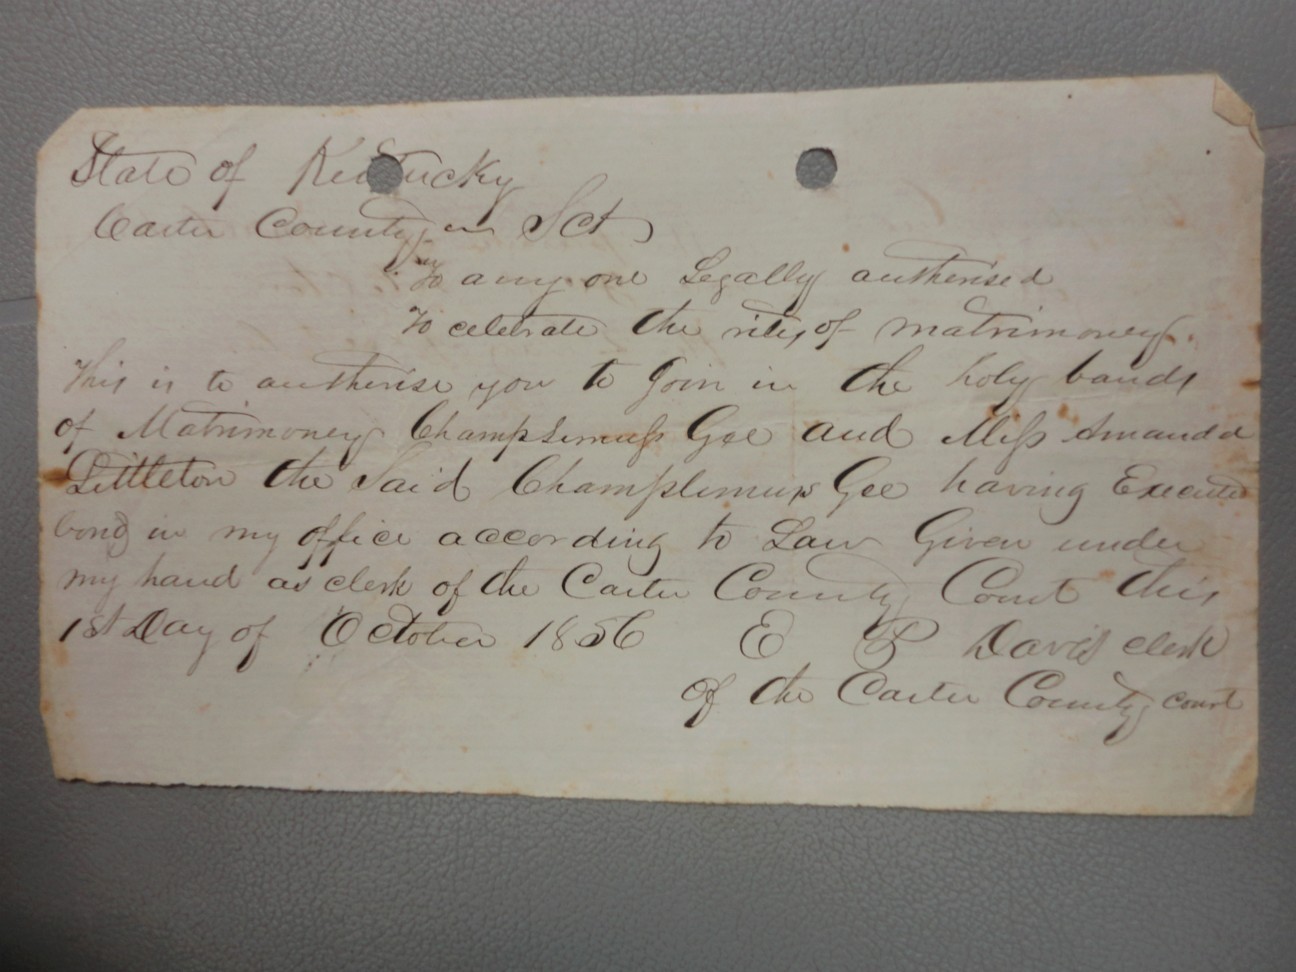 State of Kentucky
Carter County Sct
To any one Legally autherised
To celebrate the rites of matrimoney.
This is to autherise you to Join in the holy bands
of Matrimoney Champlimuss Gee and Miss Amanda
Littleton the Said Champlimuss Gee having Executed
bond in my office according to Law Given under
my hand as clerk of the Carter County Court this
1st Day of October 1856 E P Davis clerk
Of the Carter County court